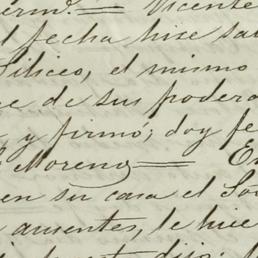 firmó. = Vicente
fecha hice sa
Siliceo, el mismo
e de sus podera
y firmó; doy fe
Moreno = En
en su casa el So
ausentes, le hice
dijo: